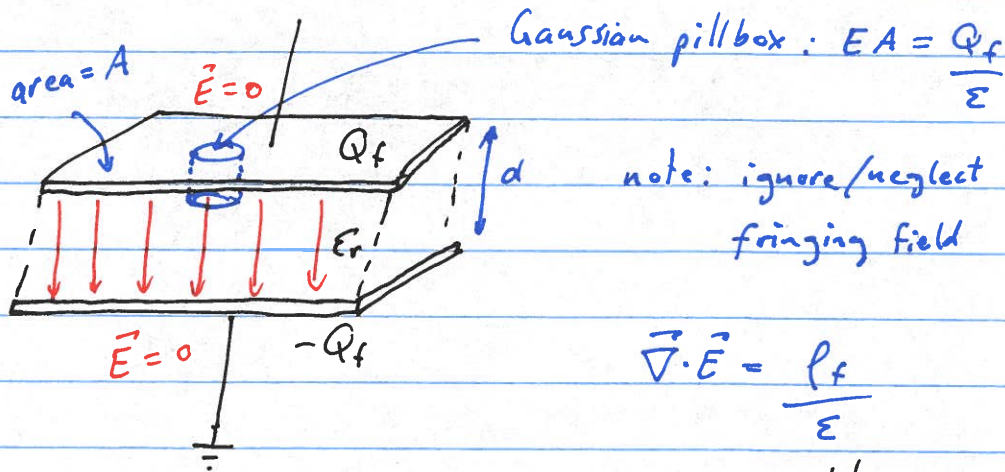 Gaussian pillbox : EA = Q_f / ε
area = A
E⃗ = 0
Q_f
d
note: ignore/neglect
fringing field
ε_r
E⃗ = 0
-Q_f
∇⃗·E⃗ = ρ_f / ε